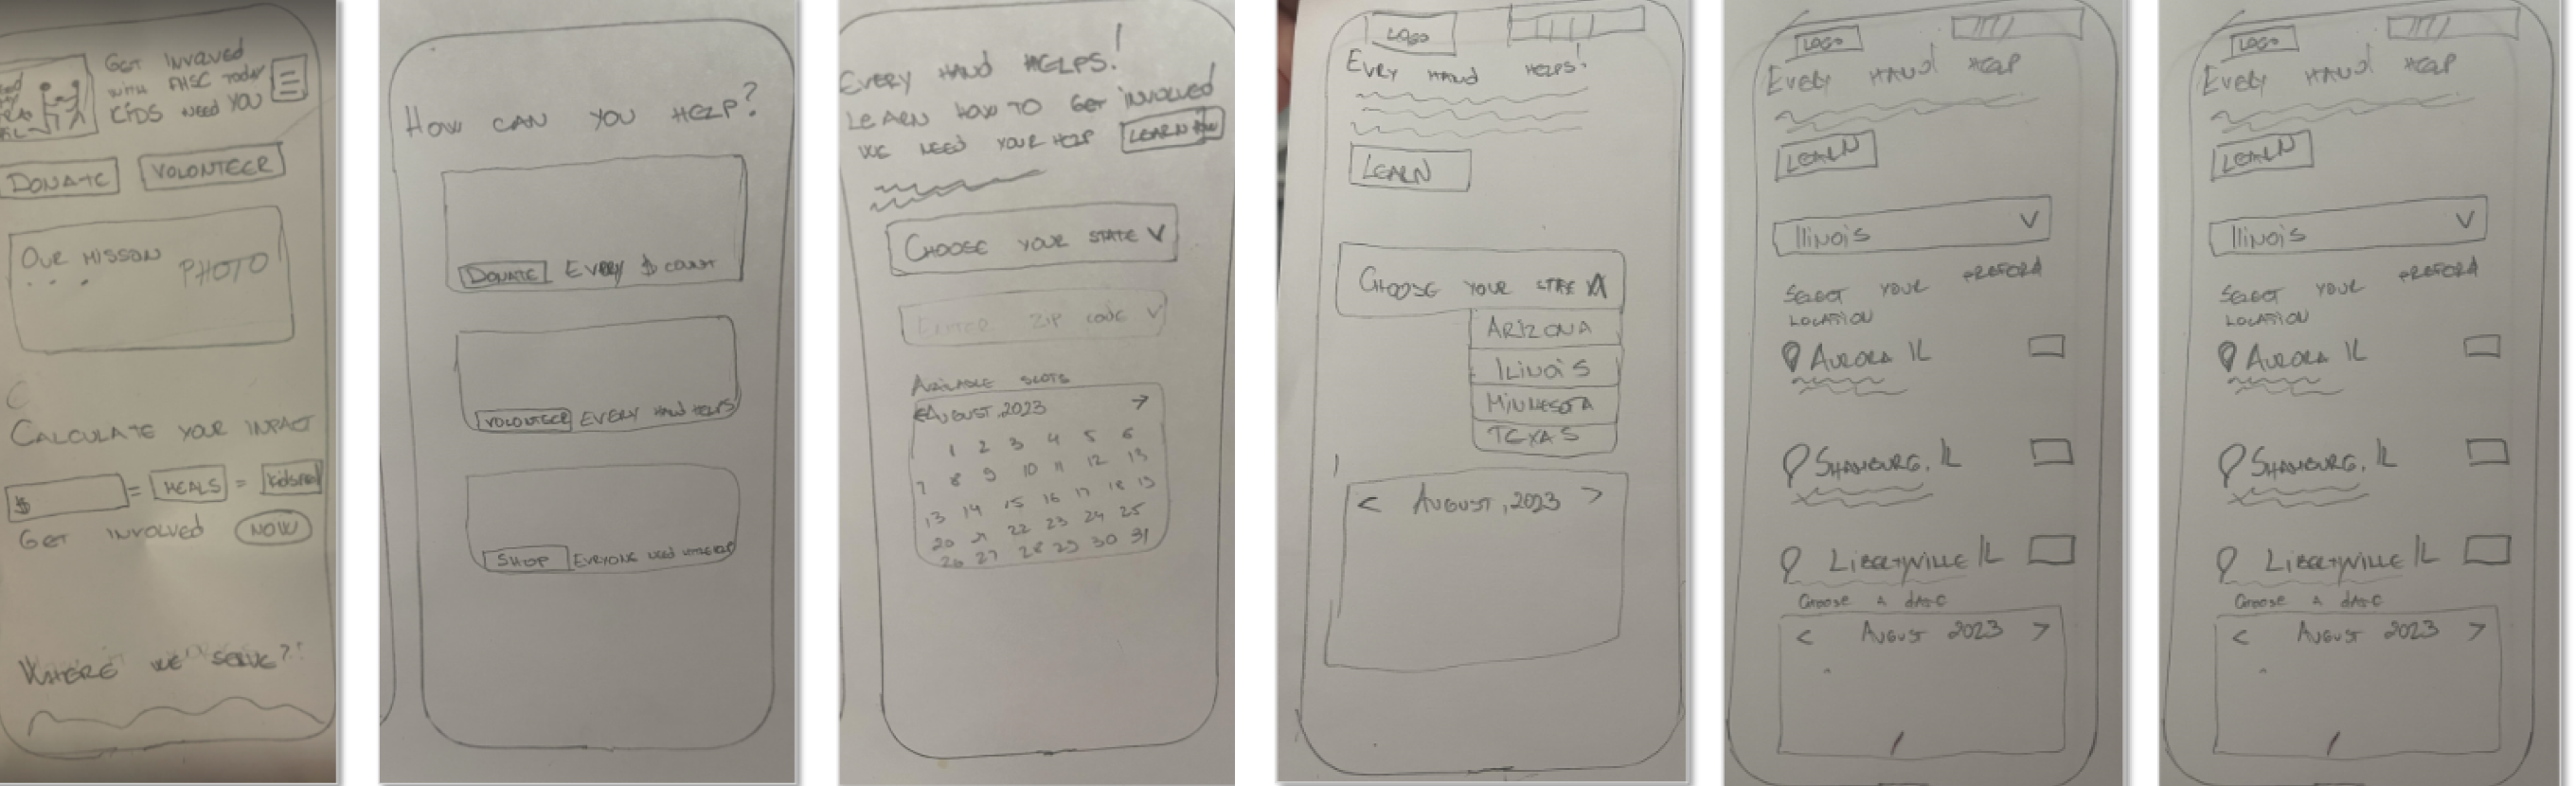 GET INVOLVED
WITH FHSC TODAY
KIDS NEED YOU
DONATE
VOLONTEER
OUR MISSON
...
PHOTO
CALCULATE YOUR INPACT
$ = MEALS =
GET INVOLVED NOW
WHERE WE SERVE?
HOW CAN YOU HELP?
DONATE EVERY $ COUNT
VOLONTEER EVERY HAND HELPS
SHOP EVRYONE NEED
EVERY HAND HELPS!
LEARN HOW TO GET INVOLVED
WE NEED YOUR HELP LEARN HOW
CHOOSE YOUR STATE V
ENTER ZIP CODE V
AVAILABLE SLOTS
< AUGUST, 2023 →
1 2 3 4 5 6
7 8 9 10 11 12 13
13 14 15 16 17 18 19
20 21 22 23 24 25
26 27 28 29 30 31
LOGO
EVRY HAND HELPS!
LEARN
CHOOSE YOUR STATE
ARIZONA
ILINOIS
MINNESOTA
TEXAS
< AUGUST, 2023 >
LOGO
EVERY HAND HELP
LEARN
IlINOIS V
SELECT YOUR PREFORD
LOCATION
AURORA IL
SHAMBURG, IL
LIBERTYVILLE IL
Choose A DATE
< AUGUST 2023 >
LOGO
EVERY HAND HELP
LEARN
IlINOIS V
SELECT YOUR PREFORD
LOCATION
AURORA IL
SHAMBURG, IL
LIBERTYVILLE IL
Choose A DATE
< AUGUST 2023 >